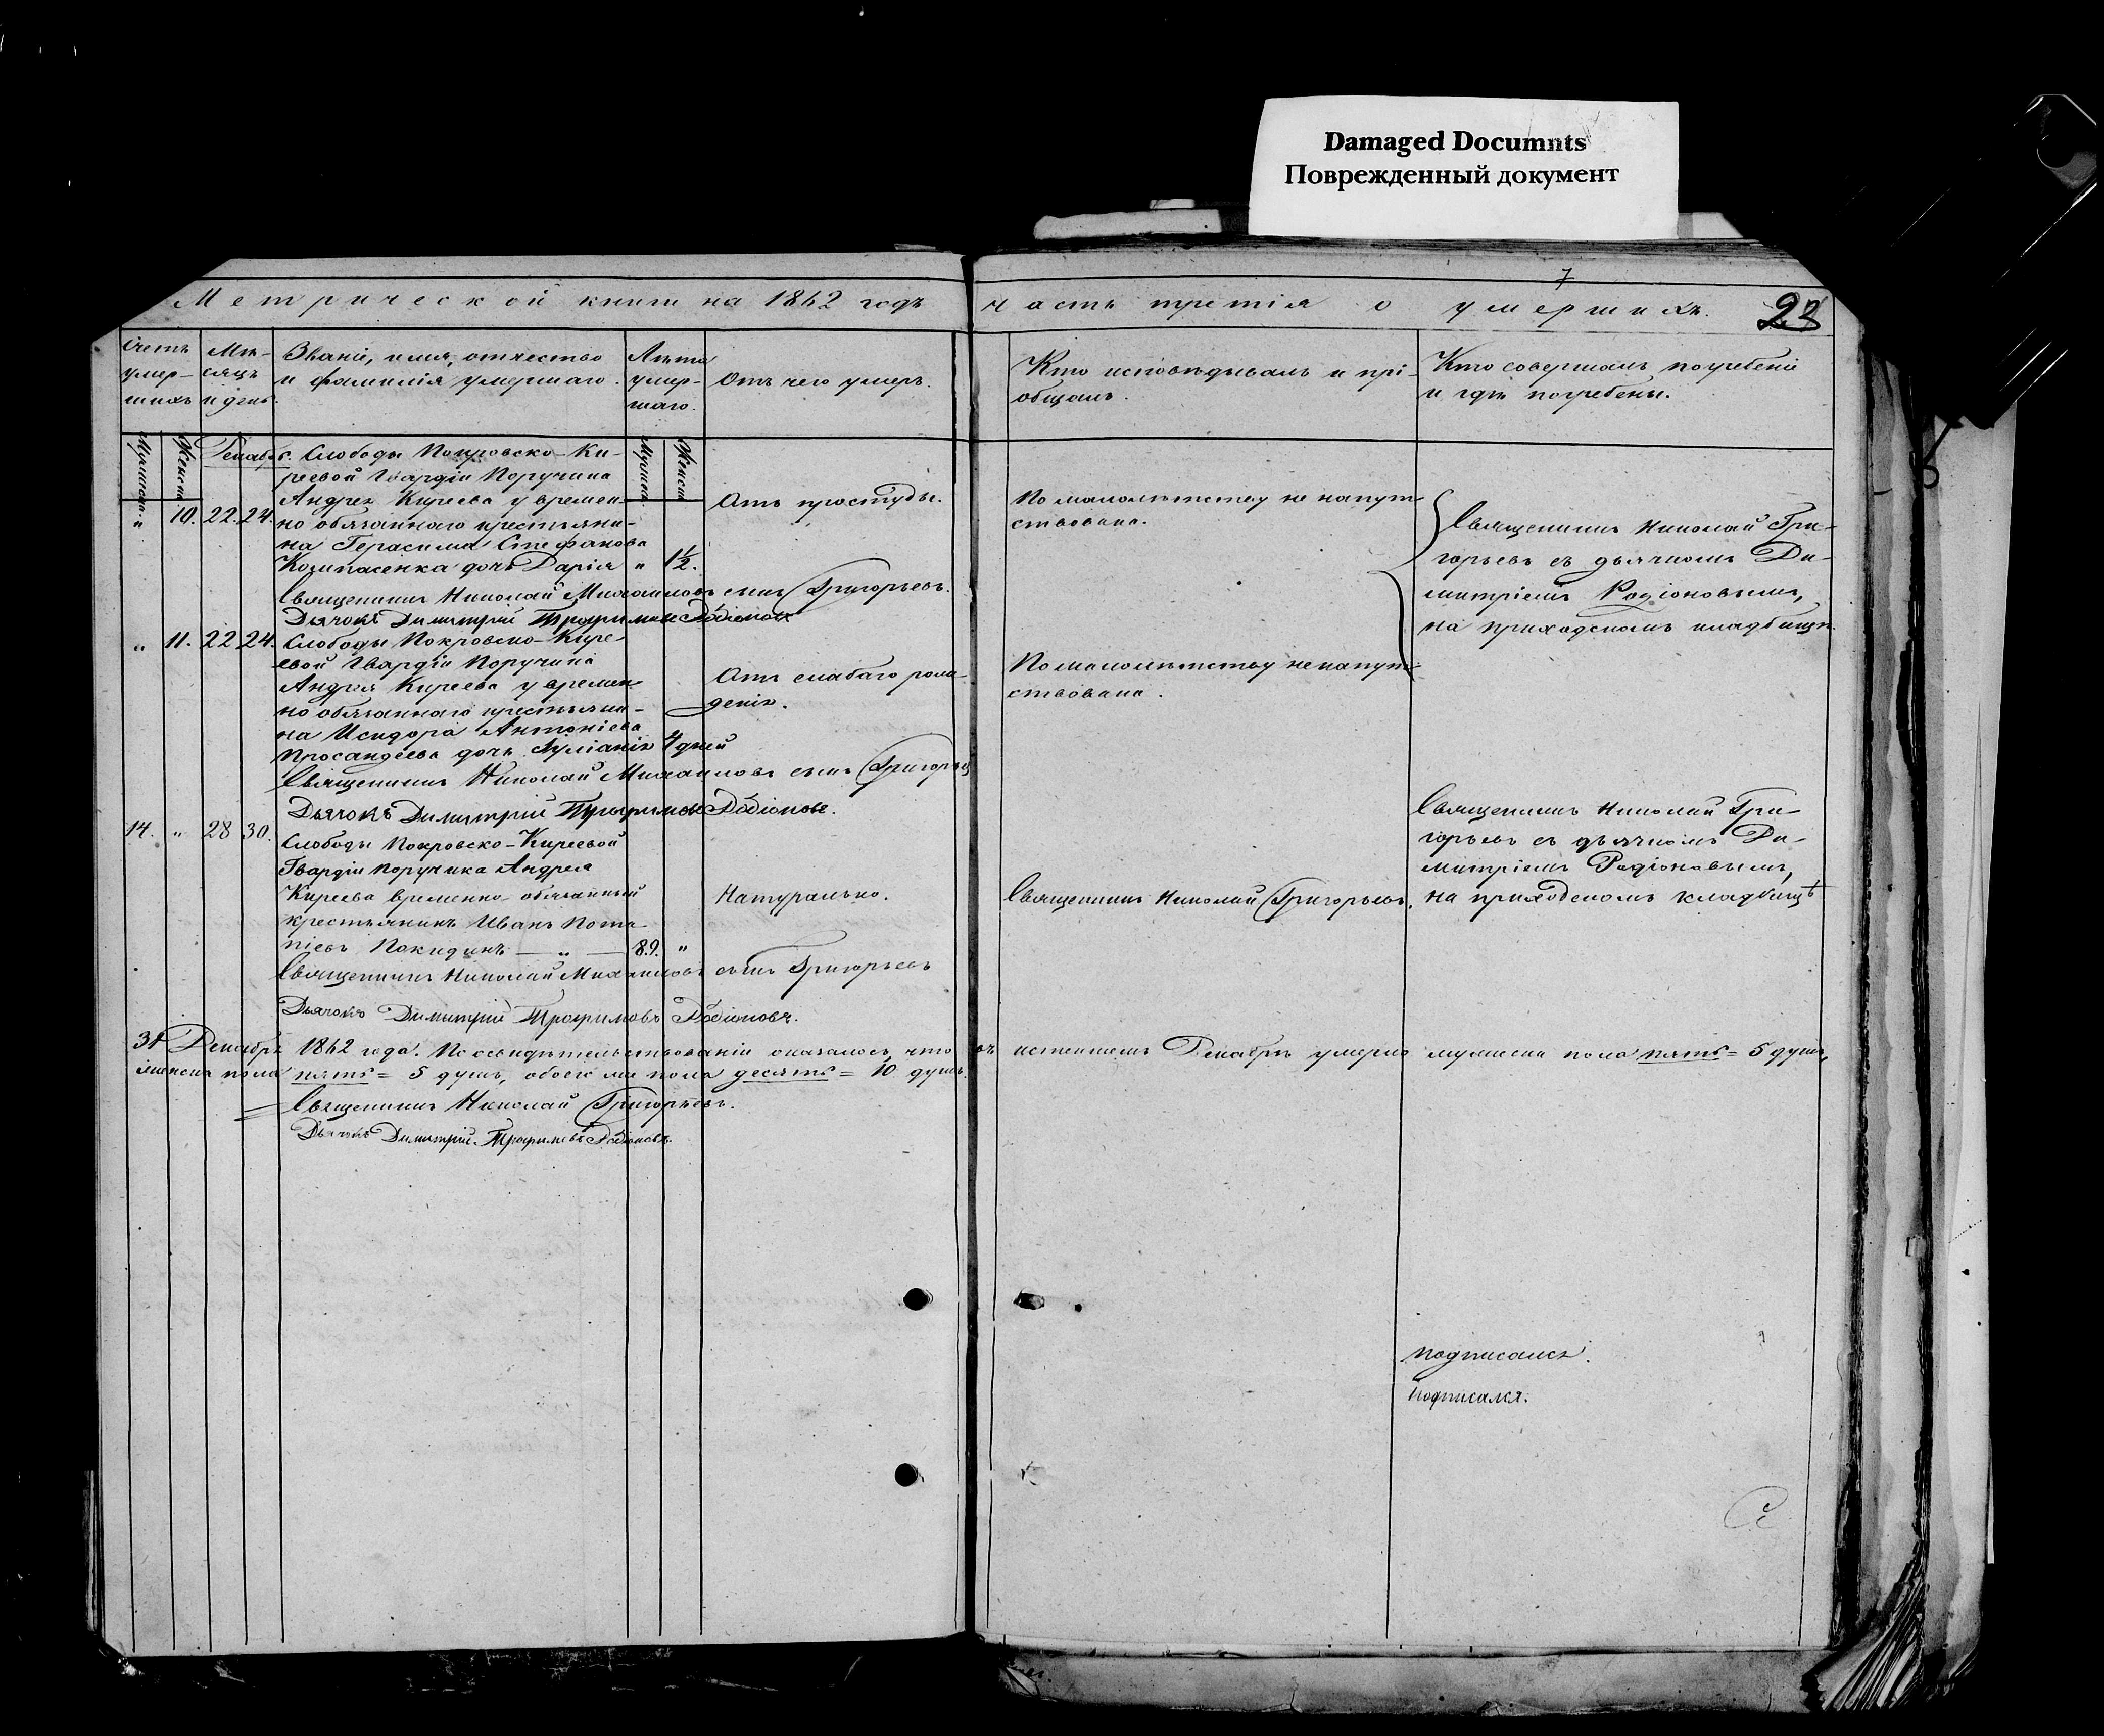 Damaged Documnts
Поврежденный документ
7
Метрической книги на 1862 годъ часть третія о умершихъ. 23
Счетъ умер-шихъ
Мѣ-сяцъ и день.
Званіе, имя, отчество
и фамилія умершаго.
Лѣта умер-шаго.
Отъ чего умеръ.
Кто исповѣдывалъ и прі-
общалъ.
Кто совершалъ погребеніе
и гдѣ погребены.
Мужеска.
Женска
Декабрь.
Мужеск.
Женск.
Слободы Покровско-Ки-
реевой Гвардіи Поручика
Андрея Киреева у времен-
„ 10. 22. 24. но обязаннаго крестьяни-
на Герасима Стефанова
дочь Дарія „ 1½.
Отъ простуды.
По малолѣтству не напут-
ствована.
Священникъ Николай Гри-
горьевъ съ дьячкомъ Ди-
митріемъ Родіоновымъ,
на приходскомъ кладбищѣ.
Священникъ Николай Михаиловъ сынъ Григорьевъ.
Дьячокъ Димитрій Трофимовъ Родіоновъ
„ 11. 22 24. Слободы Покровско-Кире-
евой Гвардіи Поручика
Андрея Киреева у времен-
но обязаннаго крестьяни-
на Исидора Антоніева
дочь Іуліанія 4 дней
Отъ слабаго рож-
денія.
По малолѣтству не напут-
ствована.
Священникъ Николай Михаиловъ сынъ Григорьев
Дьячокъ Димитрій Трофимовъ Родіоновъ.
14. „ 28 30. Слободы Покровско-Киреевой
Гвардіи Поручика Андрея
Киреева временно-обязанный
крестьянинъ Иванъ Пота-
піевъ Покидинъ — „ — 89. „
Натурально.
Священникъ Николай Григорьевъ.
Священникъ Николай Гри-
горьевъ съ дьячкомъ Ди-
митріемъ Родіоновымъ,
на приходскомъ кладбищѣ
Священникъ Николай Михаиловъ сынъ Григорьевъ
Дьячокъ Димитрій Трофимовъ Родіоновъ.
31 Декабря 1862 года. По освидѣтельствованіи оказалось, что въ истекшемъ Декабрѣ умерло мужеска пола пять = 5 душъ,
женска пола пять = 5 душъ, обоего же пола десять = 10 душъ.
Священникъ Николай Григорьевъ.
Дьячокъ Димитрій Трофимовъ Родіоновъ.
подписался.
подписался.